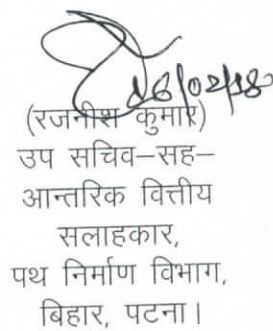 16/02/18
(रजनीश कुमार)
उप सचिव–सह–
आन्तरिक वित्तीय
सलाहकार,
पथ निर्माण विभाग,
बिहार, पटना।